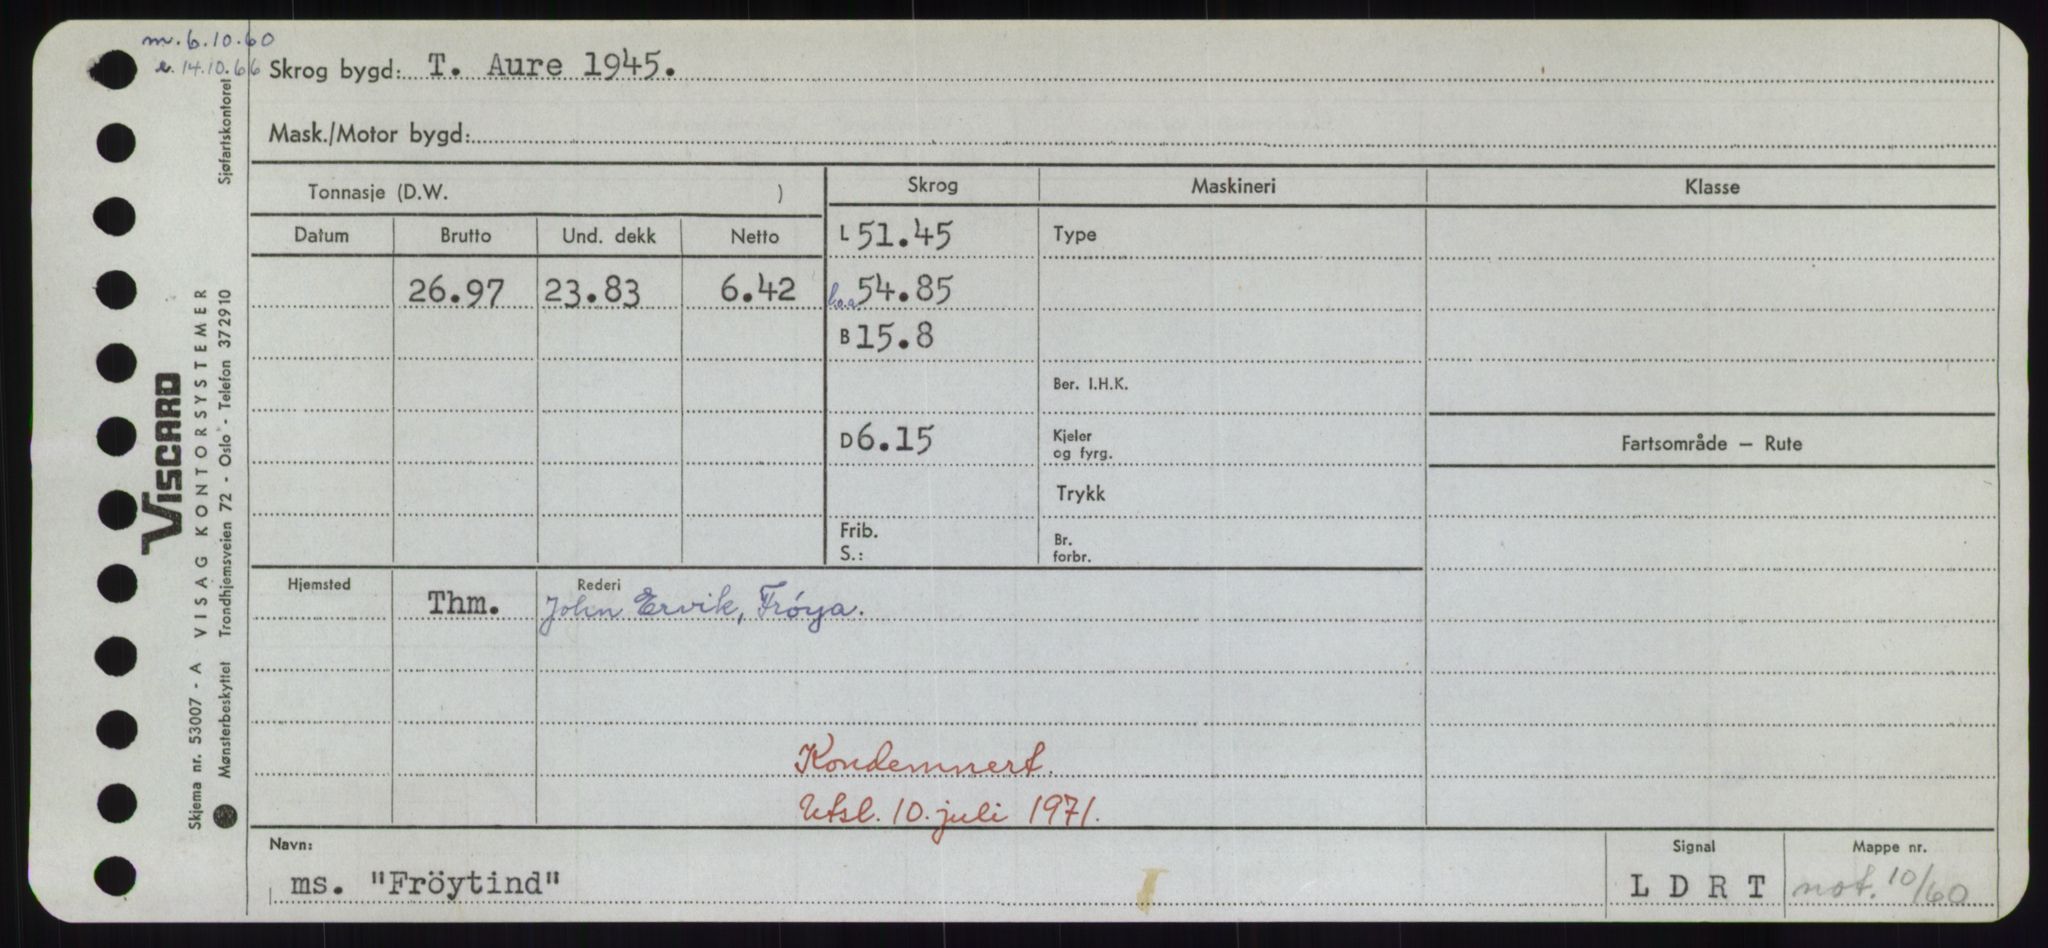 m. 6.10.60
e. 14.10.66
Skrog bygd: T. Aure 1945.
Mask./Motor bygd:
Tonnasje (D.W. )
Skrog
Maskineri
Klasse
Datum
Brutto
Und. dekk
Netto
L 51.45
Type
26.97
23.83
6.42
l.o.a. 54.85
B 15.8
Ber. I.H.K.
D 6.15
Kjeler
og fyrg.
Fartsområde — Rute
Trykk
Frib.
S.:
Br.
forbr.
Hjemsted
Thm.
Rederi
John Ervik, Frøya.
Kondemnert.
Utsl. 10. juli 1971.
Navn:
ms. "Fröytind"
Signal
L D R T
Mappe nr.
not. 10/60
Skjema nr. 53007 - A VISAG KONTORSYSTEMER
Mønsterbeskyttet Trondhjemsveien 72 - Oslo - Telefon 372910 Sjøfartskontoret
VISCARD